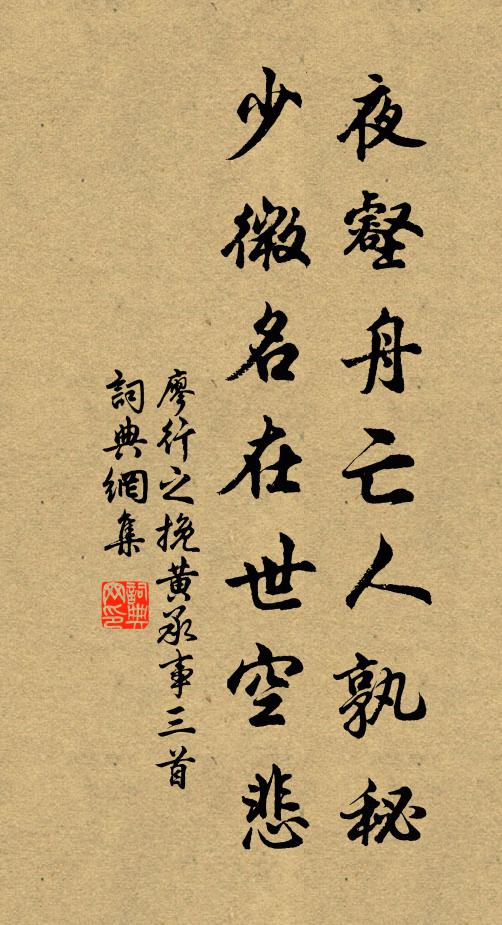 夜壑舟亡人孰秘
少微名在世空悲
廖行之挽黄承事三首
詞典網集
詞典
网印